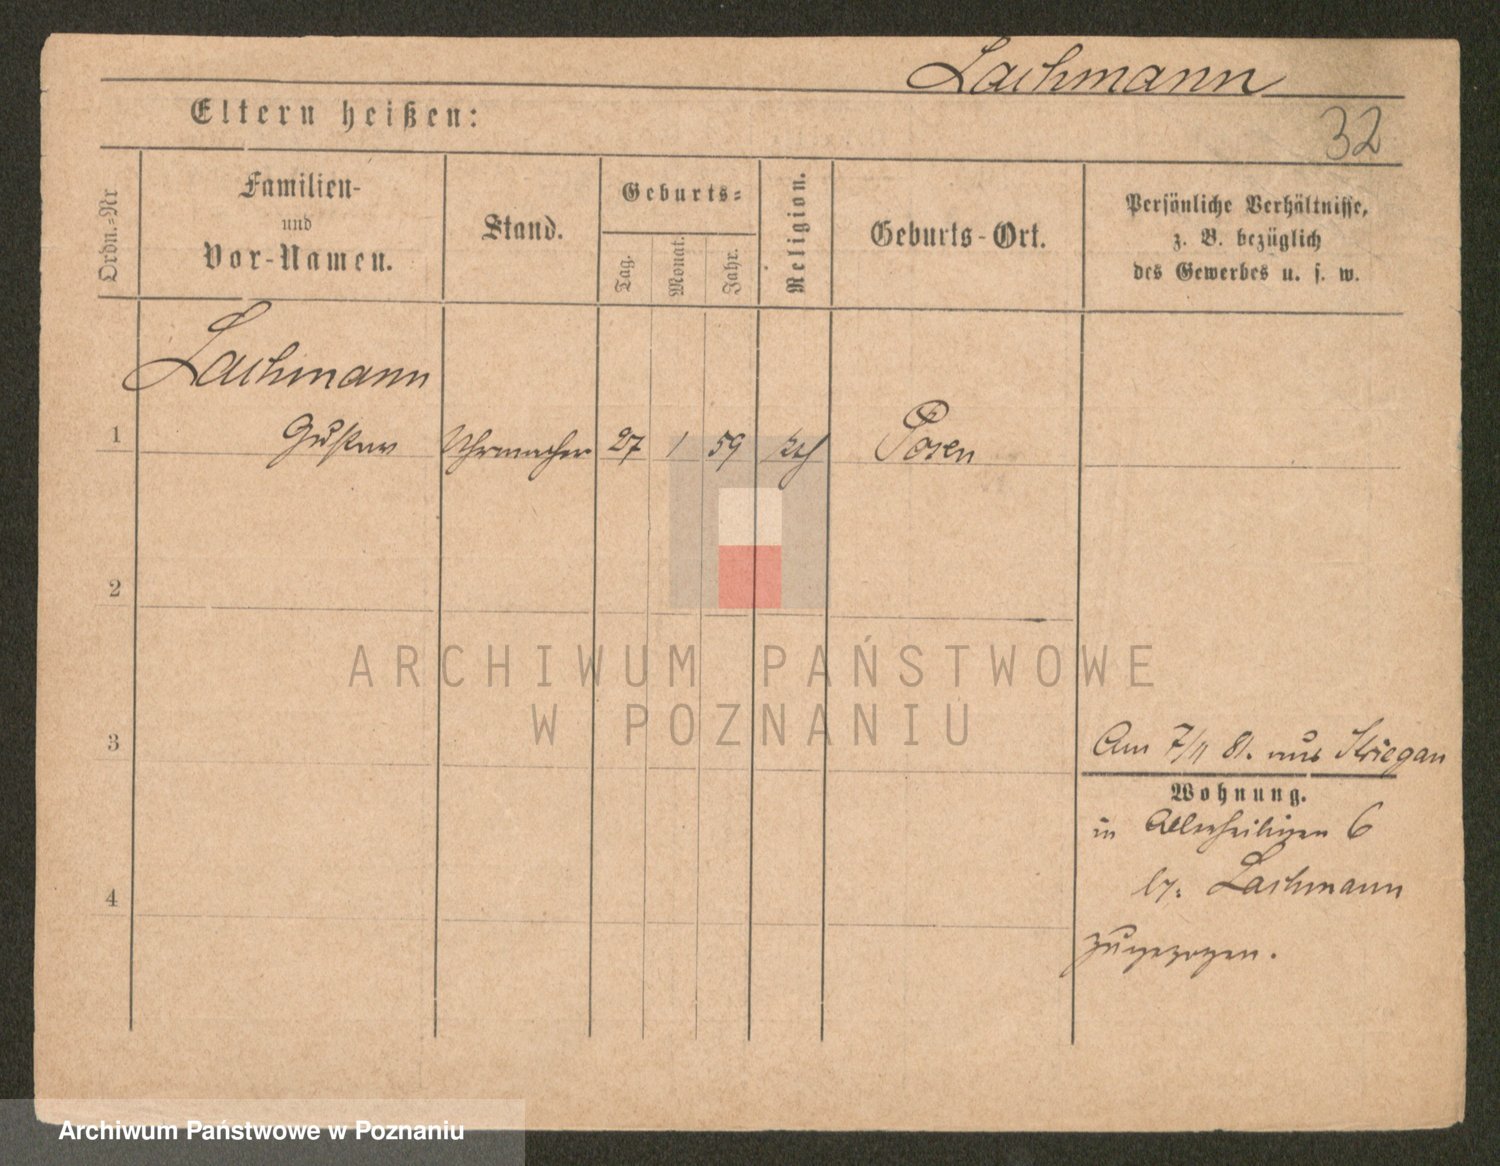 Lachmann
32
Eltern heißen:
Ordn.-Nr
Familien-
und
Vor-Namen.
Stand.
Geburts-
Tag.
Monat.
Jahr.
Religion.
Geburts-Ort.
Persönliche Verhältnisse,
z. B. bezüglich
des Gewerbes u. s. w.
Lachmann
1 Gustav Uhrmacher 27 1 59 Posen
2
3
4
Am 7/11 81. aus
Wohnung.
in Allerheiligen 6
by. Lachmann
zugezogen.
ARCHIWUM PAŃSTWOWE
W POZNANIU
Archiwum Państwowe w Poznaniu